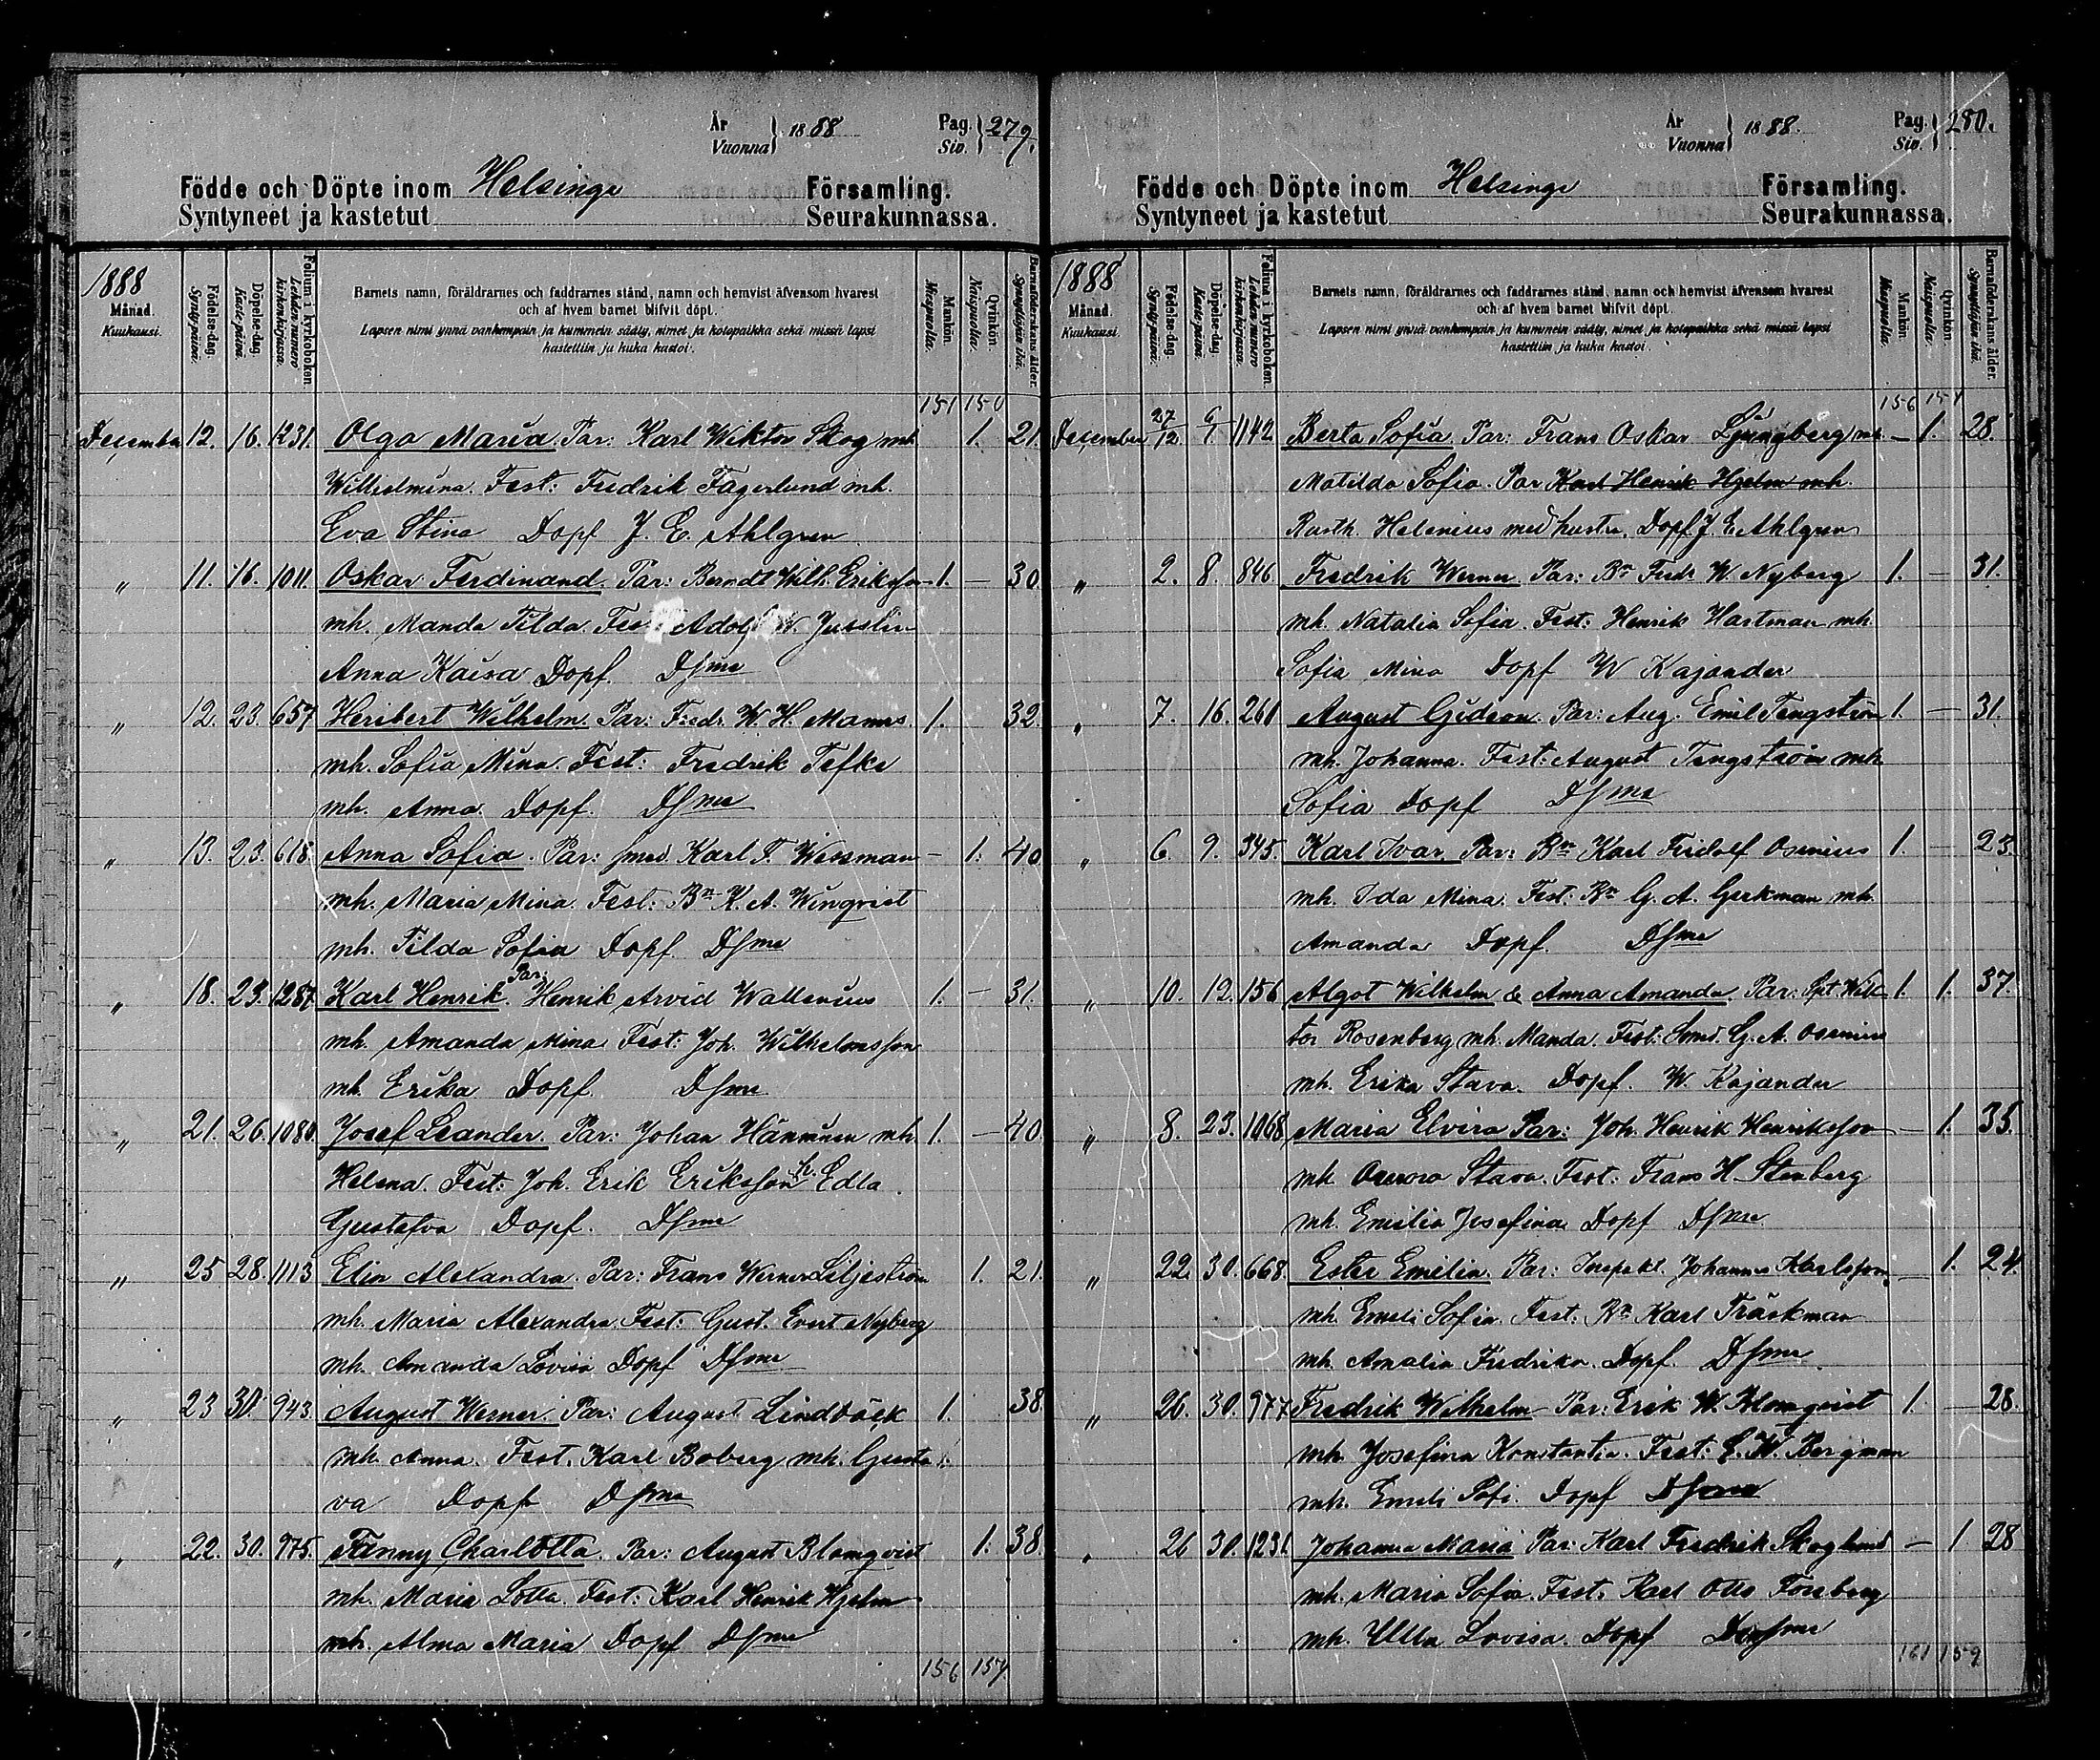 År
Vuonna } 1888 Pag. Siv. } 279.
Födde och Döpte inom Helsinge Församling.
Syntyneet ja kastetut Seurakunnassa.
1888
Månad.
Kuukausi.
Födelse-dag.
Synty-päivä.
Döpelse-dag.
Kaste-päivä.
Folium i kyrkoboken.
Lehden numero kirkonkirjassa.
Barnets namn, föräldrarnes och faddrarnes stånd, namn och hemvist äfvensom hvarest
och af hvem barnet blifvit döpt.
Lapsen nimi ynnä vanhempain ja kummein sääty, nimet ja kotopaikka sekä missä lapsi
kastettiin ja kuka kastoi.
Mankön.
Miespuolia.
Qvinkön.
Naispuolia.
Barnaföderskans ålder.
Synnyttäjän ikä.
151 150
December 12. 16. 1231. Olga Maria. Par: Karl Wiktor Skog mh. 1. 21.
Wilhelmina. Fest: Fredrik Fagerlund mh.
Eva Stina Dopf J. E. Ahlgren
" 11. 16. 1011. Oskar Ferdinand. Par: Berndt Wilh. Eriksson 1. — 30
mh. Manda Tilda. Fest Adolf W. Jusslin
Anna Kaisa Dopf. Dsme
" 12. 23. 657 Heribert Wilhelm. Par: Fredr. W. H. Manns. 1. 32.
mh. Sofia Mina. Fest: Fredrik Tefke
mh. Anna. Dopf. Dsme
" 13. 23. 618. Anna Sofia. Par: smed Karl F. Wessman — 1. 40
mh. Maria Mina. Fest: Bn K. A. Winqvist
mh. Tilda Sofia Dopf. Dsme
" 18. 23. 1287. Karl Henrik. Par: Henrik Arvid Wallenius 1. — 31.
mh. Amanda Mina Fest: Joh. Wilhelmsson
mh. Erika Dopf. Dsme
" 21. 26. 1080. Josef Leander. Par: Johan Hänninen mh. 1. — 40
Helena. Fest: Joh. Erik Eriksson h. Edla
Gustafva Dopf. Dsme
" 25 28. 1113 Elin Alexandra. Par: Frans Werner Liljeström 1. 21.
mh. Maria Alexandra. Fest: Gust. Evert Nyberg
mh. Amanda Lovisa Dopf Dsme
" 23 30. 943. August Werner. Par: August Lindbäck 1. 38.
mh. Anna. Fest. Karl Boberg mh. Gusta
va Dopf Dsme
" 22. 30. 975. Fanny Charlotta. Par: August Blomqvist 1. 38.
mh. Maria Lotta. Fest: Karl Henrik Hjelm
mh. Alma Maria Dopf Dsme
156 157.
År
Vuonna } 1888. Pag. Siv. } 280.
Födde och Döpte inom Helsinge Församling.
Syntyneet ja kastetut Seurakunnassa.
1888
Månad.
Kuukausi.
Födelse-dag.
Synty-päivä.
Döpelse-dag.
Kaste-päivä.
Folium i kyrkoboken.
Lehden numero kirkonkirjassa.
Barnets namn, föräldrarnes och faddrarnes stånd, namn och hemvist äfvensom hvarest
och af hvem barnet blifvit döpt.
Lapsen nimi ynnä vanhempain ja kummein sääty, nimet ja kotopaikka sekä missä lapsi
kastettiin ja kuka kastoi.
Mankön.
Miespuolia.
Qvinkön.
Naispuolia.
Barnaföderskans ålder.
Synnyttäjän ikä.
156 157
December 27/12 6/1 1142 Berta Sofia Par: Frans Oskar Ljungberg mh. — 1. 28.
Matilda Sofia. Par Karl Henrik Hjelm mh.
Rusth. Helenius med hustru. Dopf J. E. Ahlgren
" 2. 8. 846 Fredrik Werner. Par: Bn Fredr W. Nyberg 1. — 31.
mh. Natalia Sofia. Fest: Henrik Hartman mh.
Sofia Mina Dopf W Kajander
" 7. 16. 261 August Gideon. Par: Aug. Emil Tengström 1. — 31.
mh. Johanna. Fest: August Tengström mh
Sofia Dopf Dsme
" 6 9. 345. Karl Ivar Par: Bn Karl Fridolf Osenius 1. — 23.
mh. Ida Mina. Fest: Bn G. A. Gerkman mh.
Amanda Dopf. Dsme
" 10. 12. 156 Algot Wilhelm & Anna Amanda. Par: Spt. Wik 1. 1. 37.
tor Rosenberg mh. Manda. Fest: Smed. G. A. Osenius
mh. Erika Stava. Dopf. W. Kajander
" 8. 23. 1068 Maria Elvira Par: Joh. Henrik Henriksson — 1. 35.
mh. Aurora Stava. Fest: Frans H. Stenberg
mh. Emilia Josefina Dopf Dsme
" 22. 30. 668. Ester Emilia. Par: Inspekt. Johannes Karlsson — 1. 24.
mh. Emeli Sofia. Fest: Bn Karl Träskman
mh. Amalia Fredrika. Dopf. Dsme
" 26. 30. 977 Fredrik Wilhelm Par: Erik W. Blomqvist 1. — 28.
mh. Josefina Konstantia. Fest: E. W. Bergman
mh. Emeli Sofi. Dopf Dsme
" 26 30. 1231. Johanna Maria Par: Karl Fredrik Skoglund — 1 28
mh. Maria Sofia. Fest: Karl Otto Forsberg
mh. Ulla Lovisa. Dopf Dsme
161 159